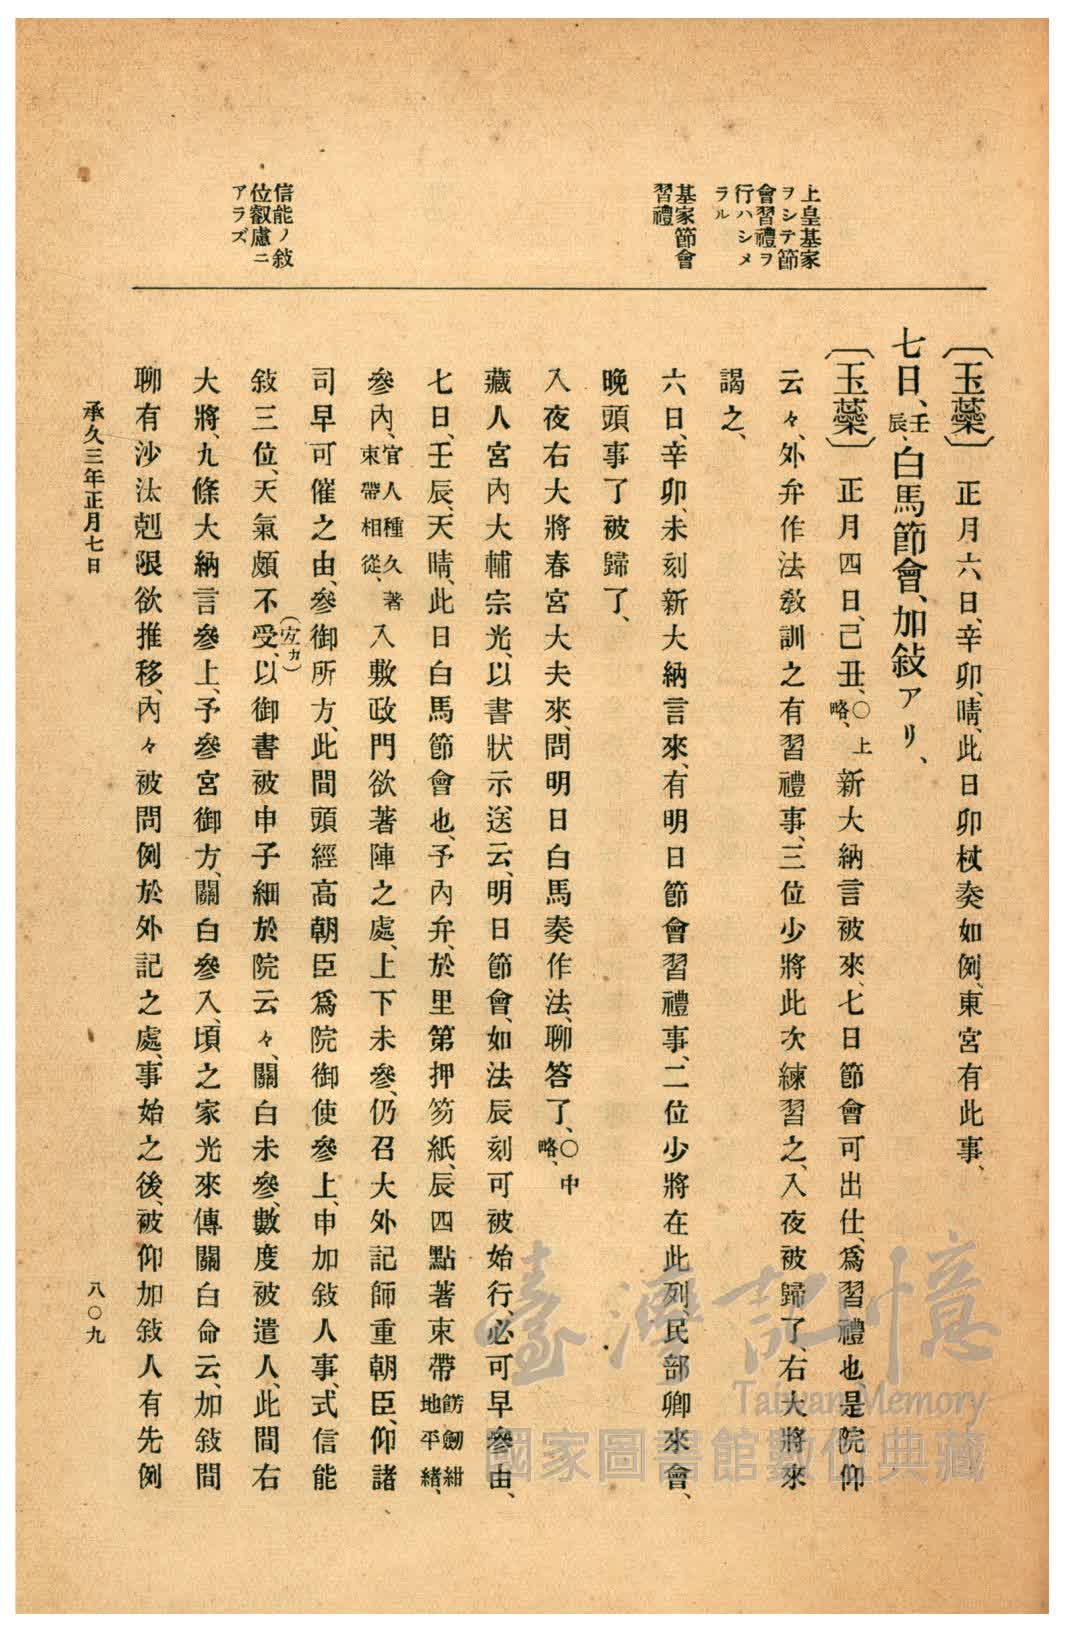 上皇基家
ヲシテ節
會習禮ヲ
行ハシメ
ラル
基家節會
習禮
信能ノ敍
位叡慮ニ
アラズ
〔玉蘂〕 正月六日、辛卯、晴、此日卯杖奏如例、東宮有此事、
七日、壬辰、白馬節會、加敍アリ、
〔玉蘂〕 正月四日、己丑、〇上略、新大納言被來、七日節會可出仕、爲習禮也、是院仰
云々、外弁作法敎訓之、有習禮事、三位少將此次練習之、入夜被歸了、右大將來
謁之、
六日、辛卯、未刻新大納言來、有明日節會習禮事、二位少將在此列、民部卿來會、
晩頭事了被歸了、
入夜右大將春宮大夫來、問明日白馬奏作法、聊答了、〇中略、
藏人宮內大輔宗光、以書狀示送云、明日節會、如法辰刻可被始行、必可早參由、
七日、壬辰、天晴、此日白馬節會也、予內弁、於里第押笏紙、辰四點著束帶餝劔紺地平緖、
參內、官人種久著束帶相從、入敷政門欲著陣之處、上下未參、仍召大外記師重朝臣、仰諸
司早可催之由、參御所方、此間頭經高朝臣爲院御使參上、申加敍人事、式信能
敍三位、天氣頗不受、(宍カ)以御書被申子細於院云々、關白未參、數度被遣人、此間右
大將、九條大納言參上、予參宮御方、關白參入、頃之家光來傳關白命云、加敍間
聊有沙汰剋限欲推移、內々被問例於外記之處、事始之後、被仰加敍人有先例
承久三年正月七日
八〇九
臺灣記憶
Taiwan Memory
國家圖書館數位典藏